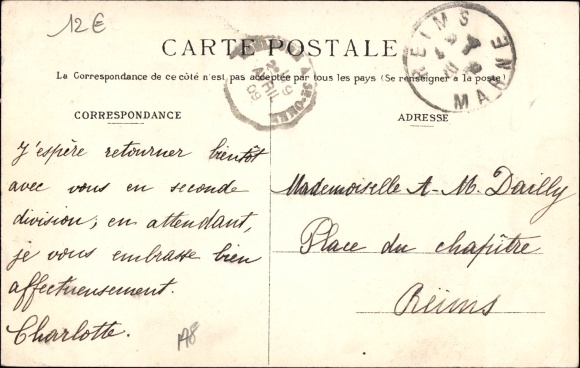 12€
CARTE POSTALE
La Correspondance de ce côté n'est pas acceptée par tous les pays (Se renseigner à la poste)
REIMS
MARNE
AVRIL
09
CORRESPONDANCE
ADRESSE
J'espère retourner bientôt
avec vous en seconde
division; en attendant,
je vous embrasse bien
affectueusement.
Charlotte.
Mademoiselle A-M. Dailly
Place du chapître
Reims